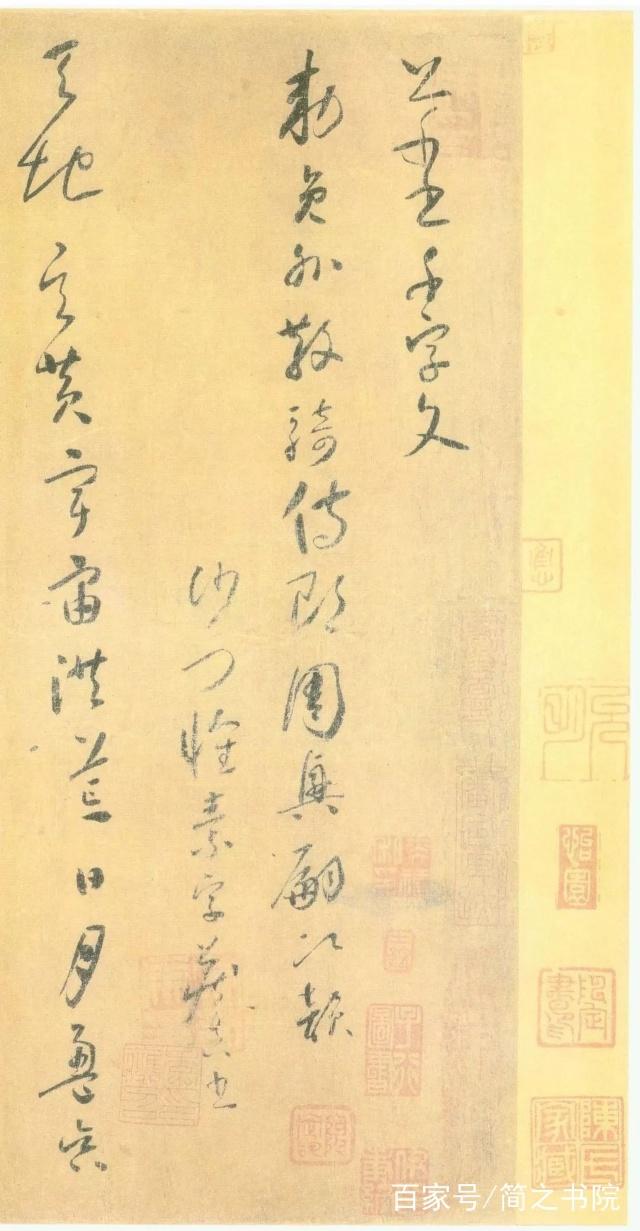 草書千字文
敕員外散騎侍郎周興嗣次韻
沙門懷素字藏真書
天地玄黃宇宙洪荒日月盈昃
陳氏家藏
百家号/简之书院